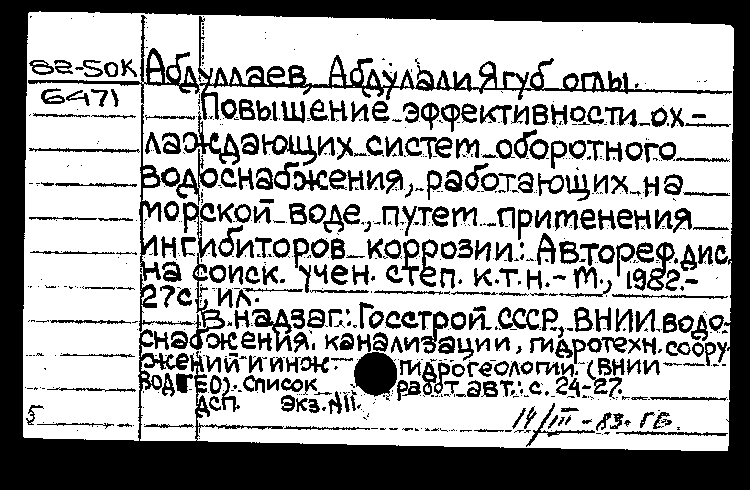 82-50К Абдуллаев, Абдулали Ягуб оглы.
6471 Повышение эффективности ох-
лаждающих систем оборотного
водоснабжения, работающих на
морской воде, путем применения
ингибиторов коррозии: Автореф. дис.
на соиск. учен. степ. к.т.н. - М., 1982.-
27с., ил.
В надзаг.: Госстрой СССР, ВНИИ водо-
снабжения, канализации, гидротехн. соору-
жений и инж. гидрогеологии. (ВНИИ
ВОДГЕО). Список работ авт.: с. 24-27.
ДСП. Экз. №11.
5 14/III-83. ГБ.